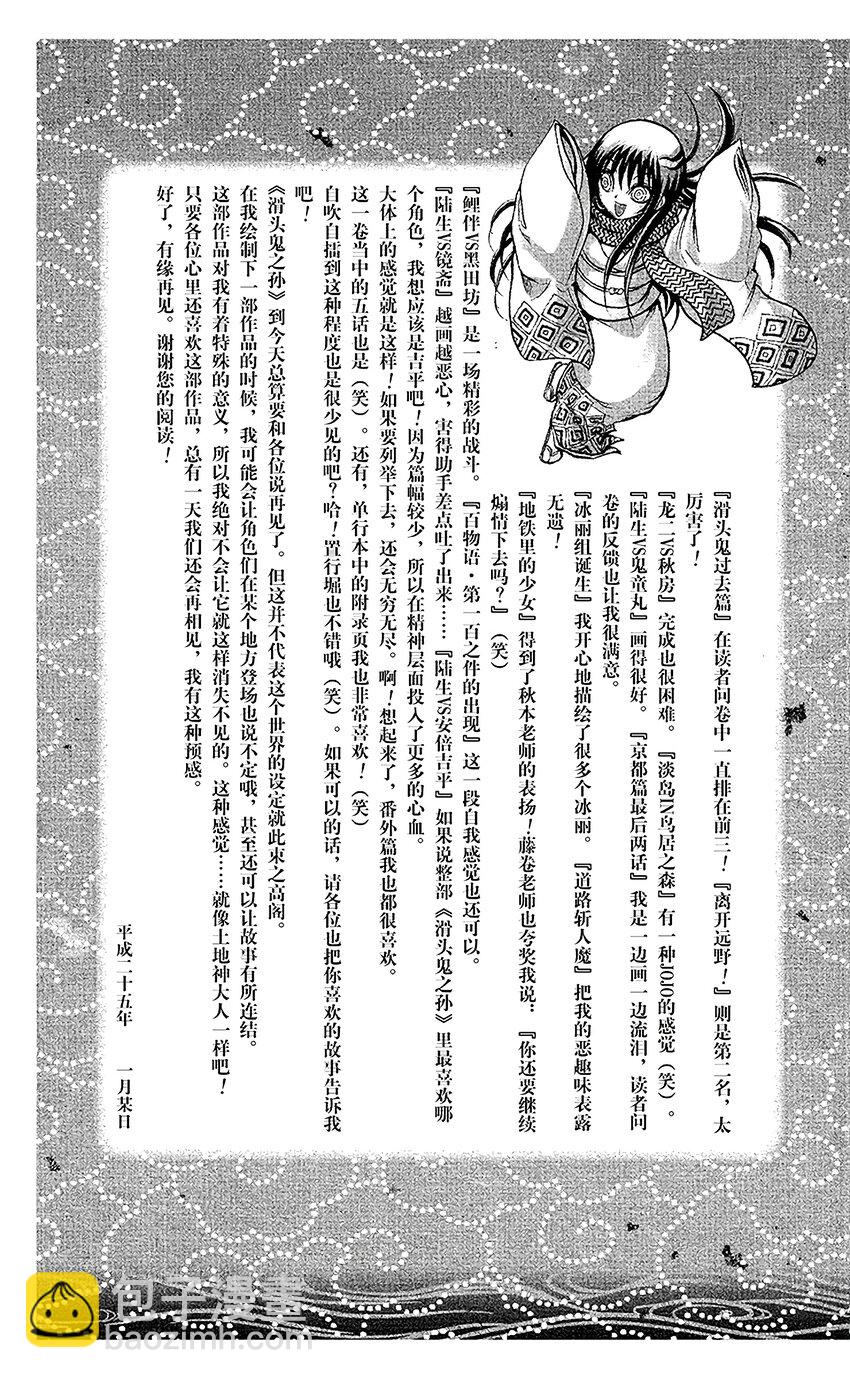 『滑头鬼过去篇』在读者问卷中一直排在前三！『离开远野！』则是第二名，太
厉害了！
『龙二VS秋房』完成也很困难。『淡岛IN鸟居之森』有一种JOJO的感觉（笑）。
『陆生VS鬼童丸』画得很好。『京都篇最后两话』我是一边画一边流泪，读者问
卷的反馈也让我很满意。
『冰丽组诞生』我开心地描绘了很多个冰丽。『道路斩人魔』把我的恶趣味表露
无遗！
『地铁里的少女』得到了秋本老师的表扬！藤卷老师也夸奖我说：『你还要继续
煽情下去吗？』（笑）
『鲤伴VS黑田坊』是一场精彩的战斗。『百物语·第一百之件的出现』这一段自我感觉也还可以。
『陆生VS镜斋』越画越恶心，害得助手差点吐了出来……『陆生VS安倍吉平』如果说整部《滑头鬼之孙》里最喜欢哪
个角色，我想应该是吉平吧！因为篇幅较少，所以在精神层面投入了更多的心血。
大体上的感觉就是这样！如果要列举下去，还会无穷无尽。啊！想起来了，番外篇我也都很喜欢。
这一卷当中的五话也是（笑）。还有，单行本中的附录页我也非常喜欢！（笑）
自吹自擂到这种程度也是很少见的吧？哈！置行堀也不错哦（笑）。如果可以的话，请各位也把你喜欢的故事告诉我
吧！
《滑头鬼之孙》到今天总算要和各位说再见了。但这并不代表这个世界的设定就此束之高阁。
在我绘制下一部作品的时候，我可能会让角色们在某个地方登场也说不定哦，甚至还可以让故事有所连结。
这部作品对我有着特殊的意义，所以我绝对不会让它就这样消失不见的。这种感觉……就像土地神大人一样吧！
只要各位心里还喜欢这部作品，总有一天我们还会再相见，我有这种预感。
好了，有缘再见。谢谢您的阅读！
平成二十五年 一月某日
包子漫畫
baozimh.com